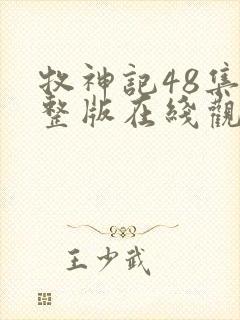 牧神記48集
整版在綫觀
王少武